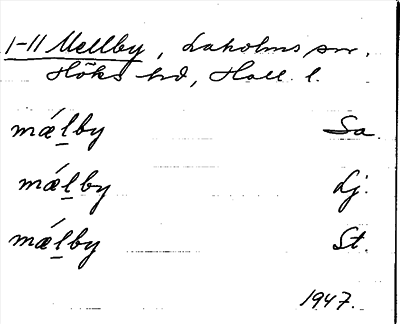 1-11 Mellby, Laholms snr,
Höks hd, Hall. l.
mǽl̲by Sa.
mǽl̲by Lj.
mǽl̲by St.
1947.